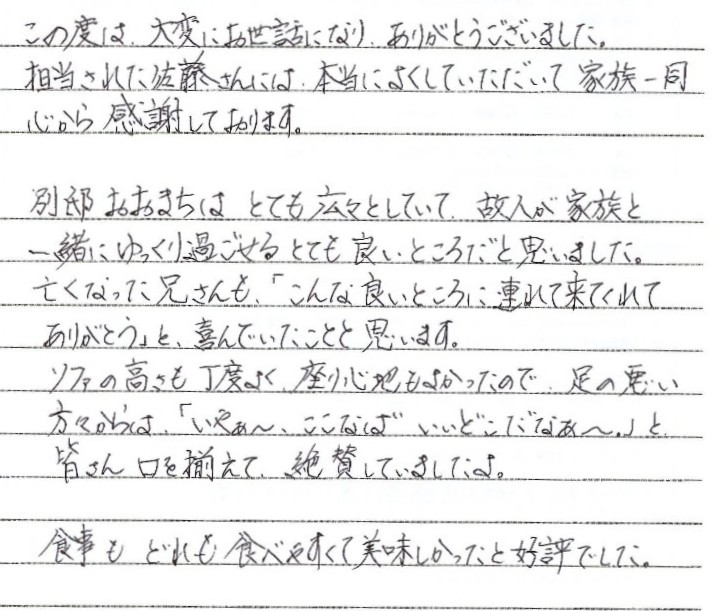 この度は、大変にお世話になり、ありがとうございました。
担当された佐藤さんには、本当によくしていただいて 家族一同
心から 感謝しております。
別邸 おおまちは とても 広々としていて、故人が 家族と
一緒に ゆっくり過ごせる とても 良いところだと思いました。
亡くなった兄さんも、「こんな 良いところに 連れて来てくれて
ありがとう」と、喜んでいたことと 思います。
ソファの高さも 丁度よく、座り心地もよかったので、足の悪い
方々からは、「いやぁ〜、ここなば いいどこだなぁ〜。」と、
皆さん 口を揃えて、絶賛していましたよ。
食事も どれも 食べやすくて 美味しかったと 好評でした。